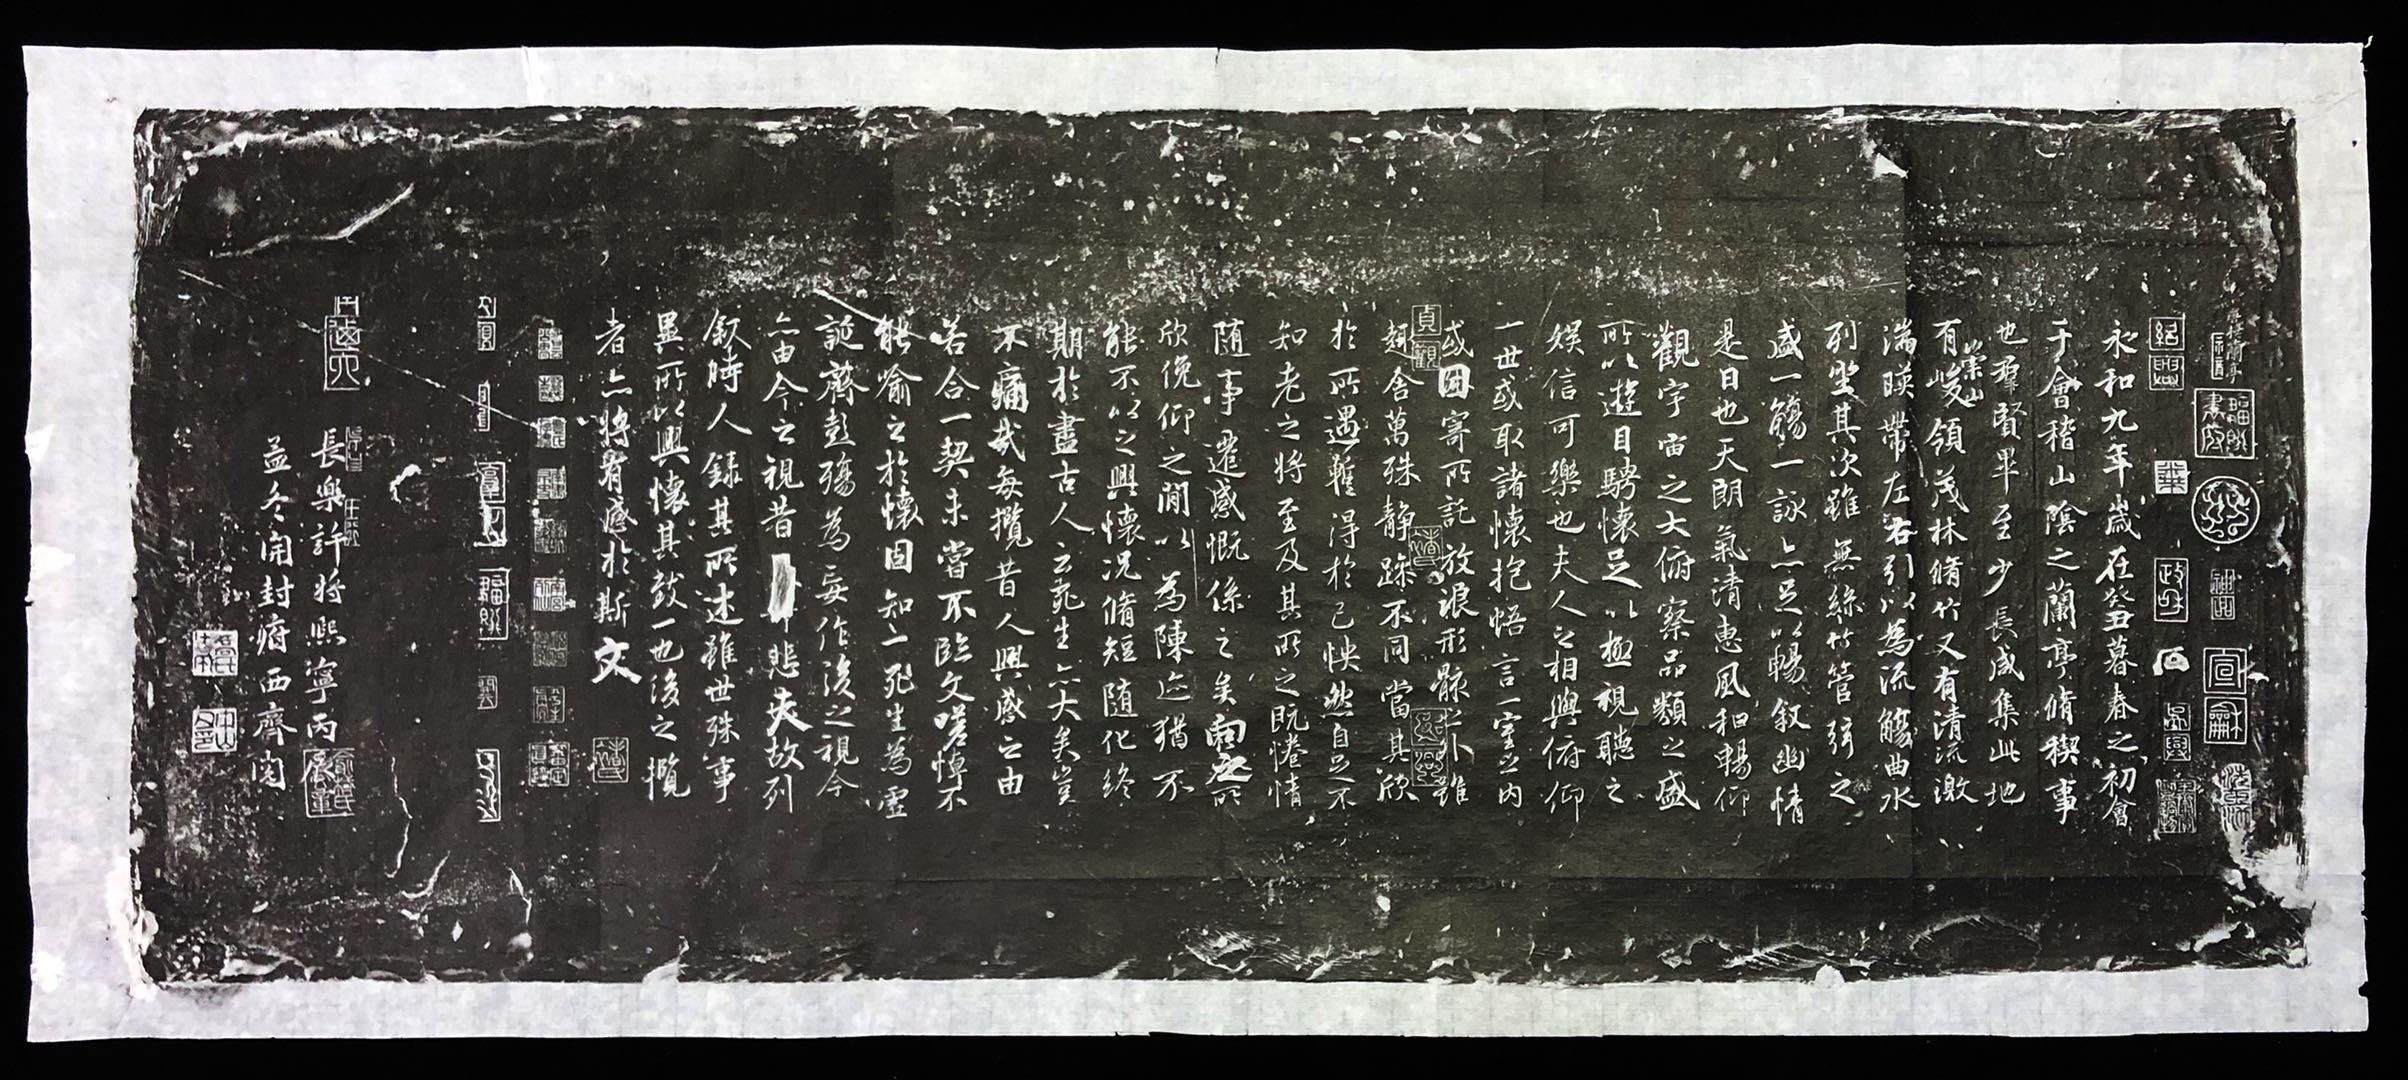 永和九年歲在癸丑暮春之初會
于會稽山陰之蘭亭脩稧事
也羣賢畢至少長咸集此地
有崇山峻領茂林脩竹又有清流激
湍暎帶左右引以為流觴曲水
列坐其次雖無絲竹管弦之
盛一觴一詠亦足以暢叙幽情
是日也天朗氣清惠風和暢仰
觀宇宙之大俯察品類之盛
所以遊目騁懷足以極視聽之
娛信可樂也夫人之相與俯仰
一世或取諸懷抱悟言一室之內
或因寄所託放浪形骸之外雖
趣舍萬殊静躁不同當其欣
於所遇暫得於己怏然自足不
知老之將至及其所之既惓情
隨事遷感慨係之矣向之所
欣俛仰之閒以為陳迹猶不
能不以之興懷況脩短隨化終
期於盡古人云死生亦大矣豈
不痛哉每攬昔人興感之由
若合一契未嘗不臨文嗟悼不
能喻之於懷固知一死生為虛
誕齊彭殤為妄作後之視今
亦由今之視昔悲夫故列
叙時人錄其所述雖世殊事
異所以興懷其致一也後之攬
者亦將有感於斯文
貞觀
紹興
政和
宣龢
長樂許將熙寧丙辰
孟冬開封府西齊閱